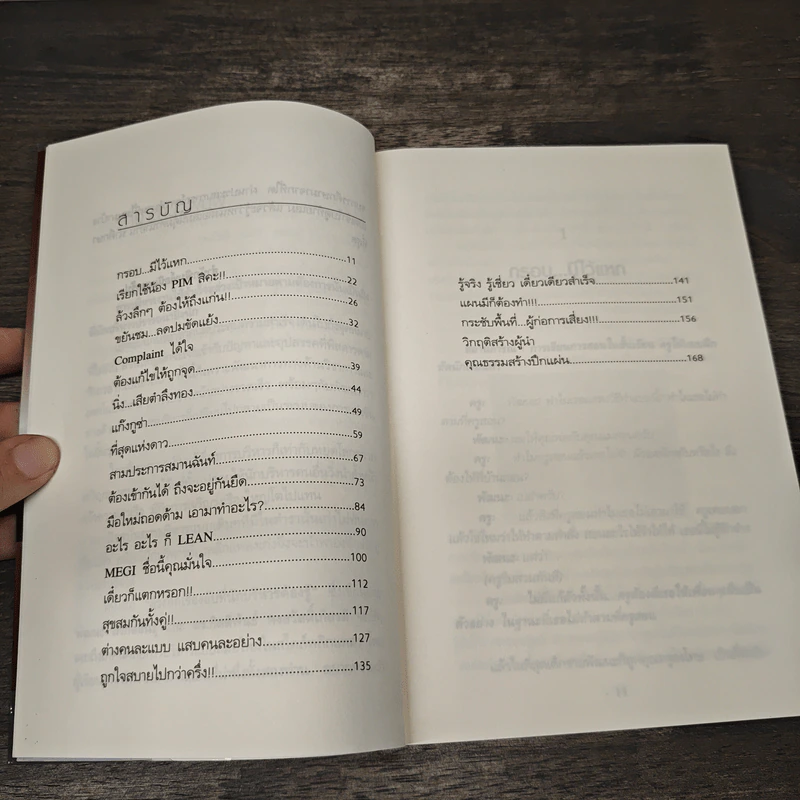 สารบัญ
กรอบ...มีไว้แหก....................................11
เรียกใช้น้อง PIM สิคะ!!..............................22
ล้วงลึกๆ ต้องให้ถึงแก่น!!.............................26
ขยันชม...ลดปมขัดแย้ง...............................32
Complaint ได้ใจ
ต้องแก้ไขให้ถูกจุด....................................39
นิ่ง...เสียตำลึงทอง...................................44
แก๊งกูซ่า...............................................49
ที่สุดแห่งดาว..........................................59
สามประการสมานฉันท์................................67
ต้องเข้ากันได้ ถึงจะอยู่กันยืด..........................73
มือใหม่ถอดด้าม เอามาทำอะไร?.......................84
อะไร อะไร ก็ LEAN...................................90
MEGI ชื่อนี้คุณมั่นใจ..................................100
เดี๋ยวก็แตกหรอก!!....................................112
สุขสมกันทั้งคู่!!.......................................117
ต่างคนละแบบ แสบคนละอย่าง.......................127
ถูกใจสบายไปกว่าครึ่ง!!..............................135
รู้จริง รู้เชี่ยว เดี๋ยวเดียวสำเร็จ........................141
แผนมีก็ต้องทำ!!!.....................................151
กระชับพื้นที่...ผู้ก่อการเสี่ยง!!!.......................156
วิกฤติสร้างผู้นำ
คุณธรรมสร้างปึกแผ่น.................................168